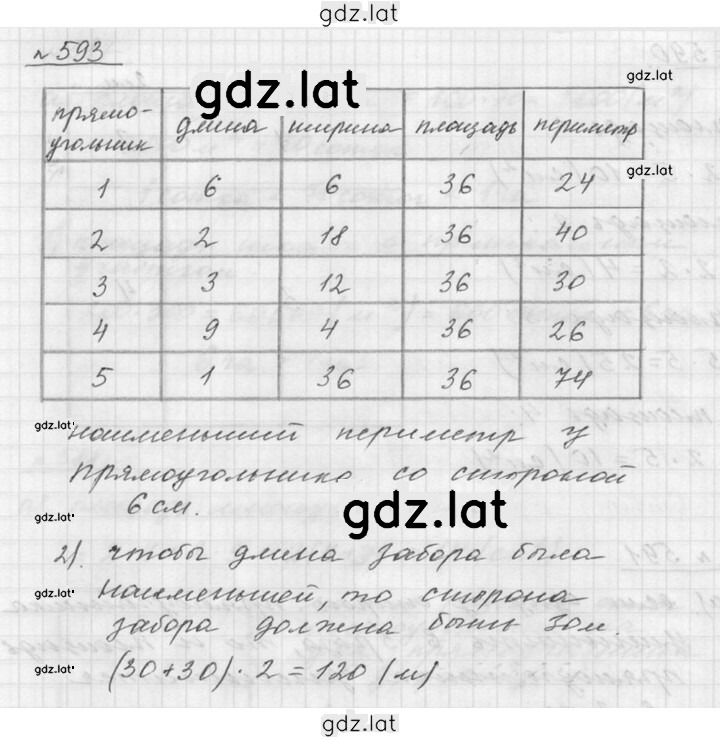 gdz.lat
№ 593
gdz.lat
gdz.lat
прямо-угольник длина ширина площадь периметр
gdz.lat
1 6 6 36 24
2 2 18 36 40
3 3 12 36 30
4 9 4 36 26
5 1 36 36 74
gdz.lat
наименьший периметр у
прямоугольника со стороной
6 см.
gdz.lat
gdz.lat
2). чтобы длина забора была
gdz.lat
наименьшей, то сторона
забора должна быть 30м.
gdz.lat
(30+30)·2=120 (м)
gdz.lat